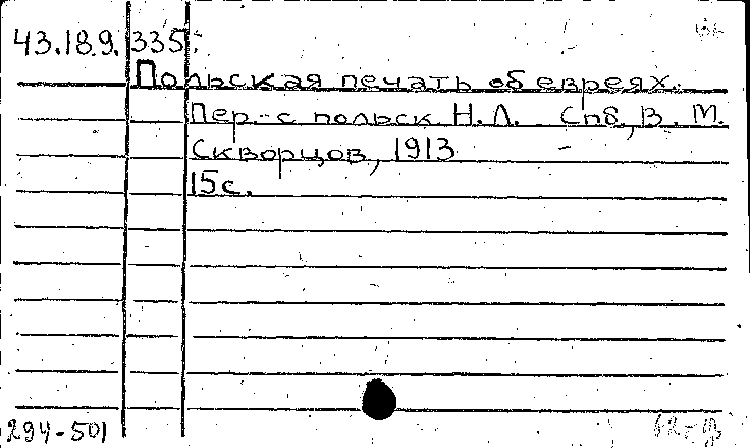 43.18.9.335.
Польская печать об евреях.
Пер. с польск. Н. Л. Спб., В. М.
Скворцов, 1913
15с.
294-501